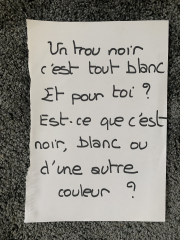 Un trou noir
c'est tout blanc
Et pour toi ?
Est-ce que c'est
noir, blanc ou
d'une autre
couleur ?